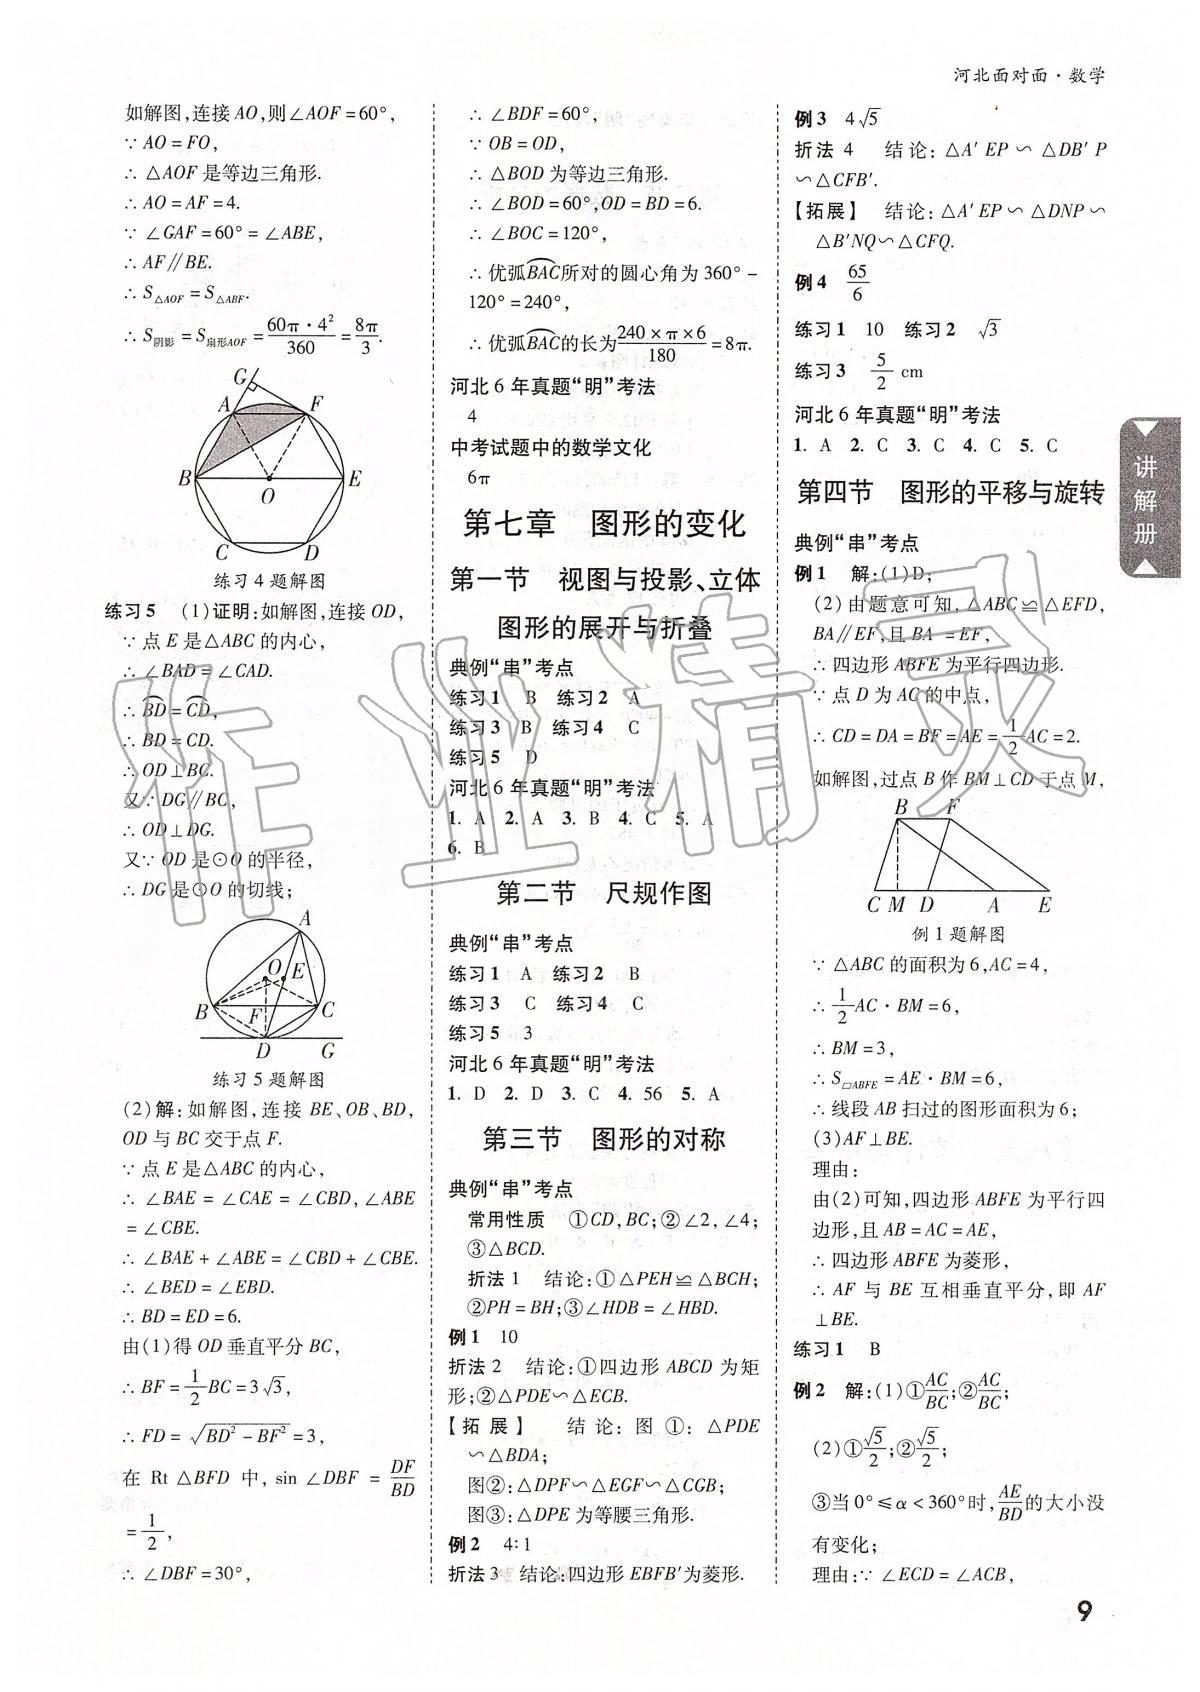 河北面对面·数学
如解图,连接AO,则∠AOF=60°,
∵AO=FO,
∴△AOF是等边三角形.
∴AO=AF=4.
∵∠GAF=60°=∠ABE,
∴AF∥BE.
∴S△AOF=S△ABF.
∴S阴影=S扇形AOF=60π·4²/360=8π/3.
G
A F
B O E
C D
练习4题解图
练习5 (1)证明:如解图,连接OD,
∵点E是△ABC的内心,
∴∠BAD=∠CAD.
∴⌒BD=⌒CD,
∴BD=CD.
∴OD⊥BC.
又∵DG∥BC,
∴OD⊥DG.
又∵OD是⊙O的半径,
∴DG是⊙O的切线;
A
O E
B F C
D G
练习5题解图
(2)解:如解图,连接BE、OB、BD,
OD与BC交于点F.
∵点E是△ABC的内心,
∴∠BAE=∠CAE=∠CBD,∠ABE
=∠CBE.
∴∠BAE+∠ABE=∠CBD+∠CBE.
∴∠BED=∠EBD.
∴BD=ED=6.
由(1)得OD垂直平分BC,
∴BF=1/2BC=3√3,
∴FD=√(BD²-BF²)=3,
在Rt△BFD中,sin∠DBF=DF/BD
=1/2,
∴∠DBF=30°,
∴∠BDF=60°,
∵OB=OD,
∴△BOD为等边三角形.
∴∠BOD=60°,OD=BD=6.
∴∠BOC=120°,
∴优弧⌒BAC所对的圆心角为360°-
120°=240°,
∴优弧⌒BAC的长为240×π×6/180=8π.
河北6年真题“明”考法
4
中考试题中的数学文化
6π
第七章 图形的变化
第一节 视图与投影、立体
图形的展开与折叠
典例“串”考点
练习1 B 练习2 A
练习3 B 练习4 C
练习5 D
河北6年真题“明”考法
1. A 2. A 3. B 4. C 5. A
6. B
第二节 尺规作图
典例“串”考点
练习1 A 练习2 B
练习3 C 练习4 C
练习5 3
河北6年真题“明”考法
1. D 2. D 3. C 4. 56 5. A
第三节 图形的对称
典例“串”考点
常用性质 ①CD,BC;②∠2,∠4;
③△BCD.
折法1 结论:①△PEH≌△BCH;
②PH=BH;③∠HDB=∠HBD.
例1 10
折法2 结论:①四边形ABCD为矩
形;②△PDE∽△ECB.
【拓展】 结论:图①:△PDE
∽△BDA;
图②:△DPF∽△EGF∽△CGB;
图③:△DPE为等腰三角形.
例2 4:1
折法3 结论:四边形EBFB′为菱形.
例3 4√5
折法4 结论:△A′EP∽△DB′P
∽△CFB′.
【拓展】 结论:△A′EP∽△DNP∽
△B′NQ∽△CFQ.
例4 65/6
练习1 10 练习2 √3
练习3 5/2 cm
河北6年真题“明”考法
1. A 2. C 3. C 4. C 5. C
第四节 图形的平移与旋转
典例“串”考点
例1 解:(1)D;
(2)由题意可知,△ABC≌△EFD,
BA∥EF,且BA=EF,
∴四边形ABFE为平行四边形.
∵点D为AC的中点,
∴CD=DA=BF=AE=1/2AC=2.
如解图,过点B作BM⊥CD于点M,
B F
C M D A E
例1题解图
∵△ABC的面积为6,AC=4,
∴1/2AC·BM=6,
∴BM=3,
∴S▱ABFE=AE·BM=6,
∴线段AB扫过的图形面积为6;
(3)AF⊥BE.
理由:
由(2)可知,四边形ABFE为平行四
边形,且AB=AC=AE,
∴四边形ABFE为菱形,
∴AF与BE互相垂直平分,即AF
⊥BE.
练习1 B
例2 解:(1)①AC/BC;②AC/BC;
(2)①√5/2;②√5/2;
③当0°≤α<360°时,AE/BD的大小没
有变化;
理由:∵∠ECD=∠ACB,
讲解册
作业精灵
9